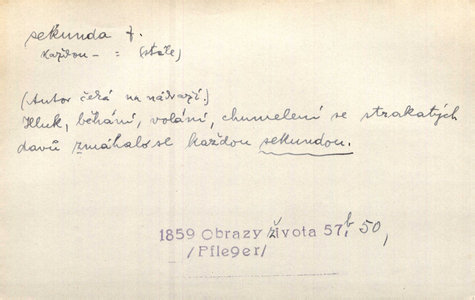 sekunda f.
každou - = (stále)
(Autor čeká na nádraží.)
Hluk, běhání, volání, chumelení se strakatých
davů zmáhalo se každou sekundou.
1859 Obrazy života 57b, 50,
/Pfleger/